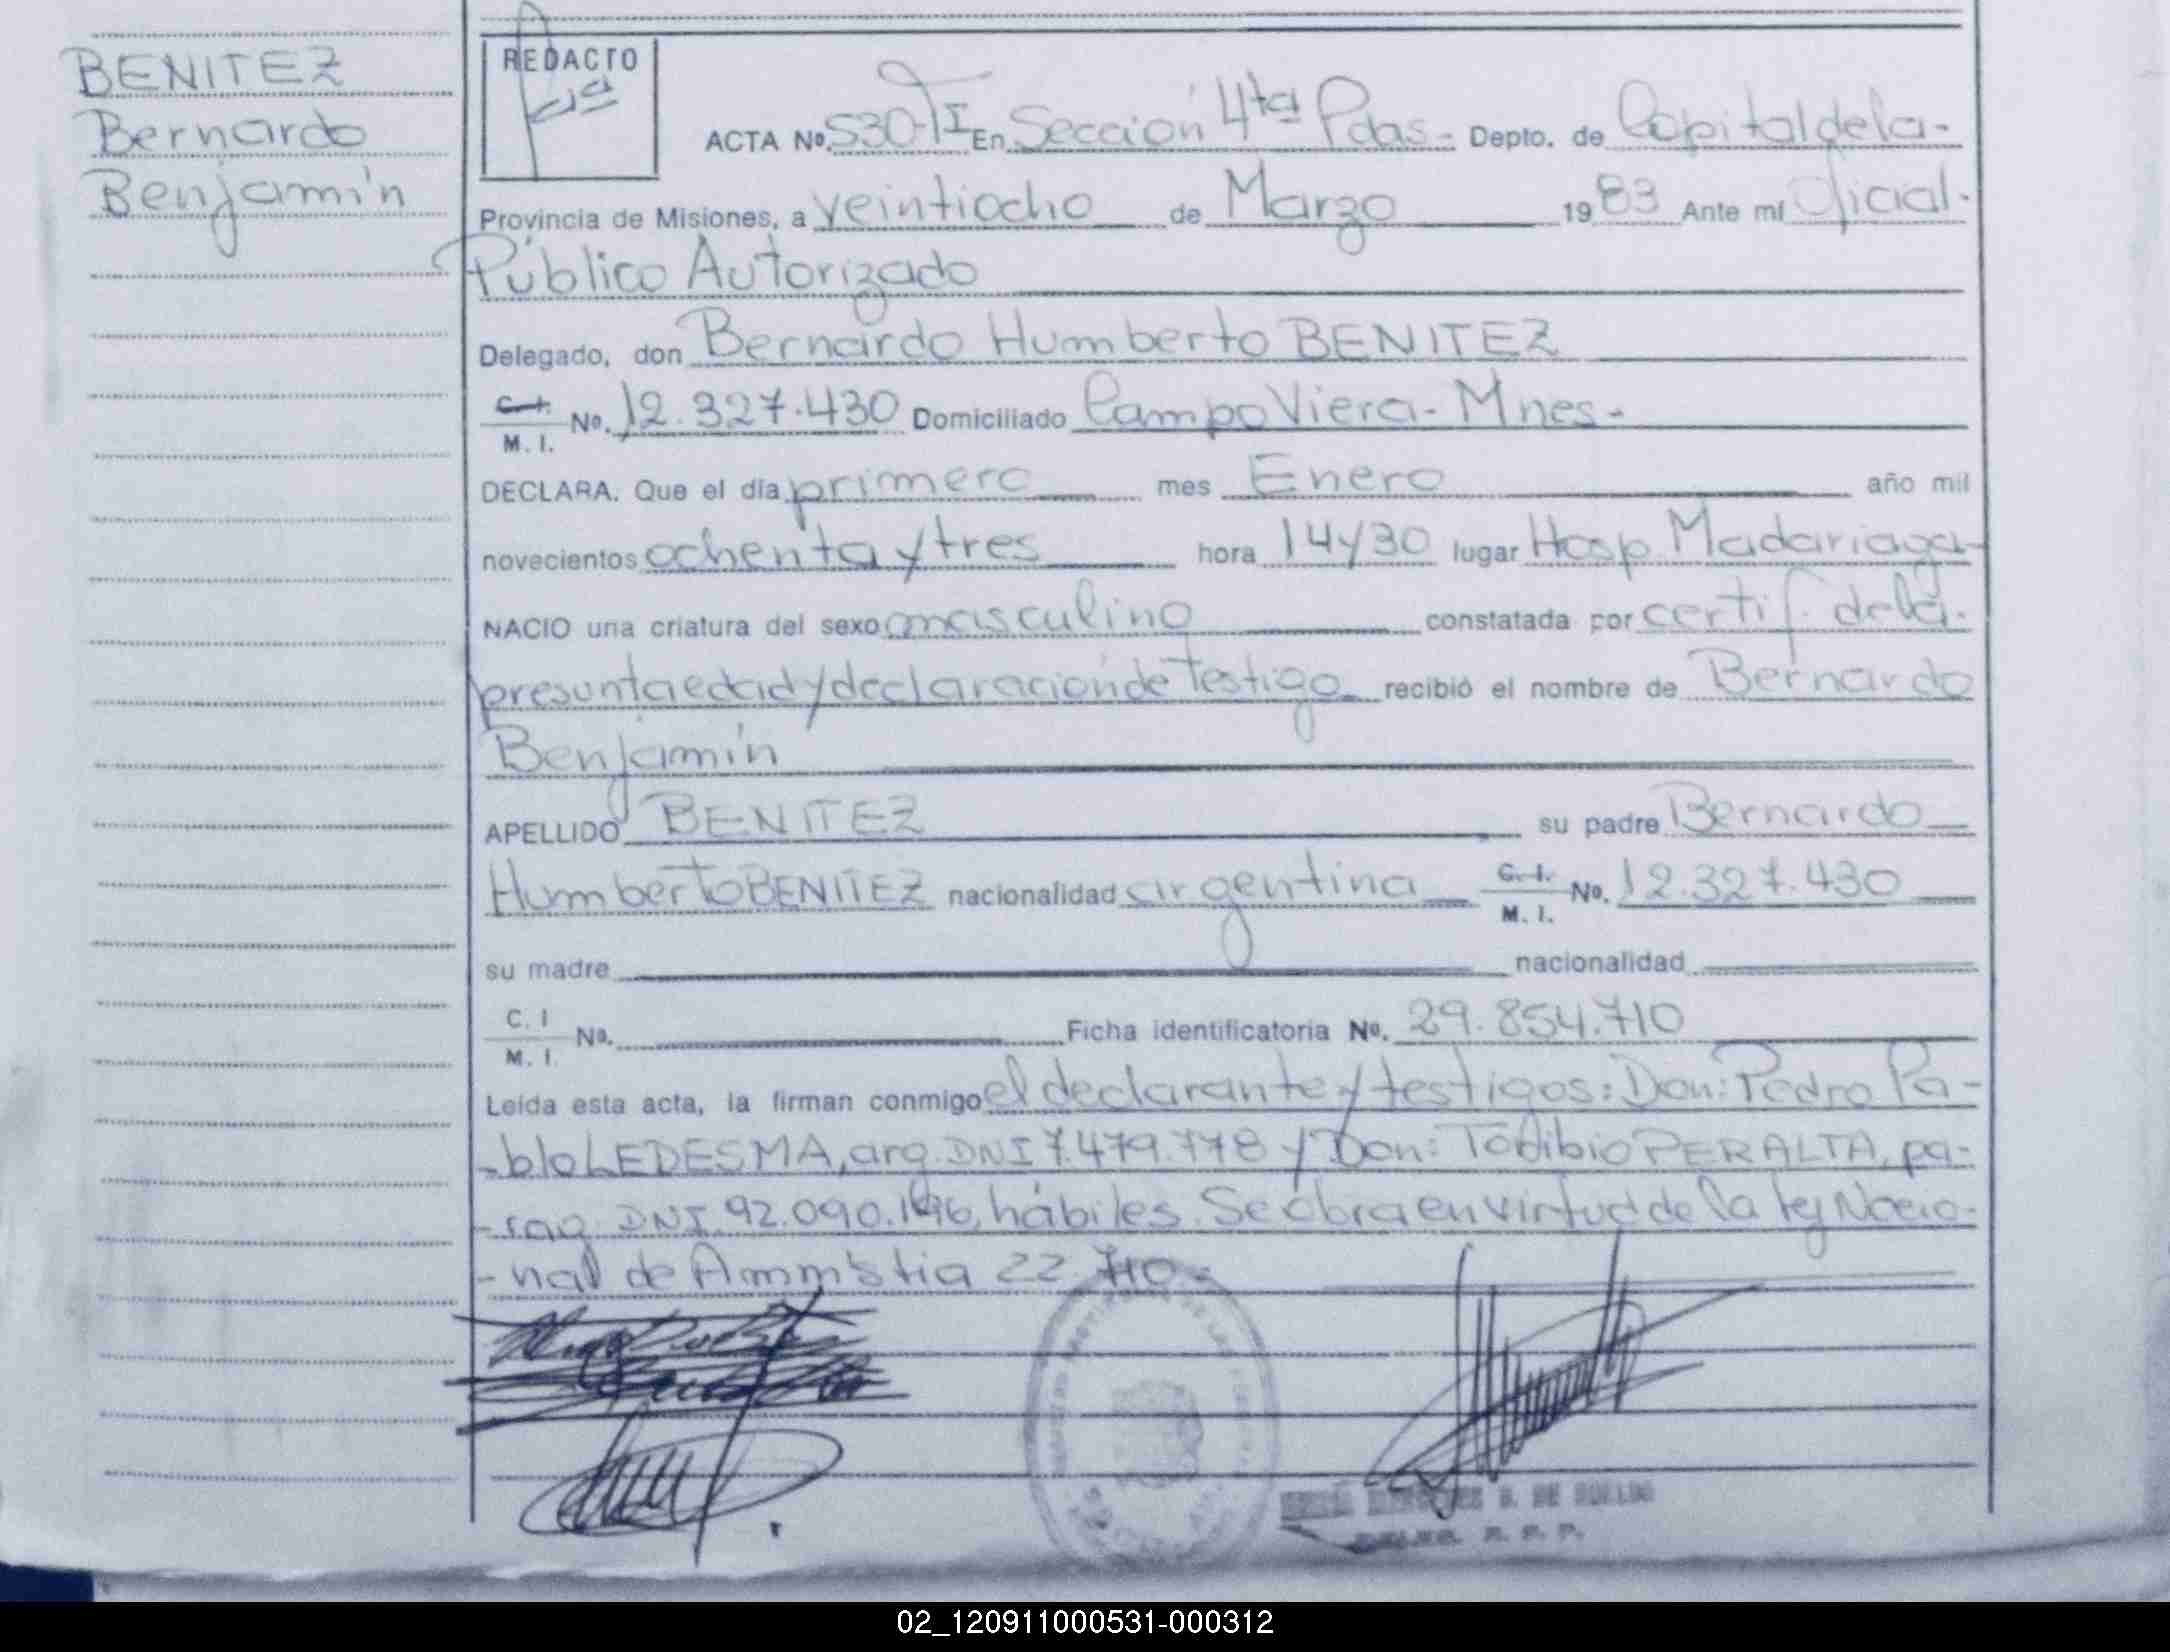 BENITEZ
Bernardo
Benjamín
REDACTO
ACTA Nº 530-TI En Sección 4ta Pdas- Depto. de Capital de la-
Provincia de Misiones, a veintiocho de Marzo 1983 Ante mí Oficial-
Público Autorizado
Delegado, don Bernardo Humberto BENITEZ
C. I. M. I. Nº. 12.327.430 Domiciliado Campo Viera- Mnes-
DECLARA. Que el día primero mes Enero año mil
novecientos ochenta y tres hora 14y30 lugar Hosp Madariaga-
NACIO una criatura del sexo masculino constatada por certif. de la-
presunta edad y declaración de Testigo recibió el nombre de Bernardo
Benjamín
APELLIDO BENITEZ su padre Bernardo
Humberto BENITEZ nacionalidad argentina C. I. M. I. Nº. 12.327.430
su madre nacionalidad
C. I M. I. Nº. Ficha identificatoria Nº. 29.854.710
Leída esta acta, la firman conmigo el declarante y testigos: Don: Pedro Pa-
-blo LEDESMA, arg. DNI 7.479.778 y Don: Toribio PERALTA, pa-
-rag. DNI. 92.090.196, hábiles. Se obra en virtud de la ley Nacio-
-nal de Ammistia 22.710-
02_120911000531-000312